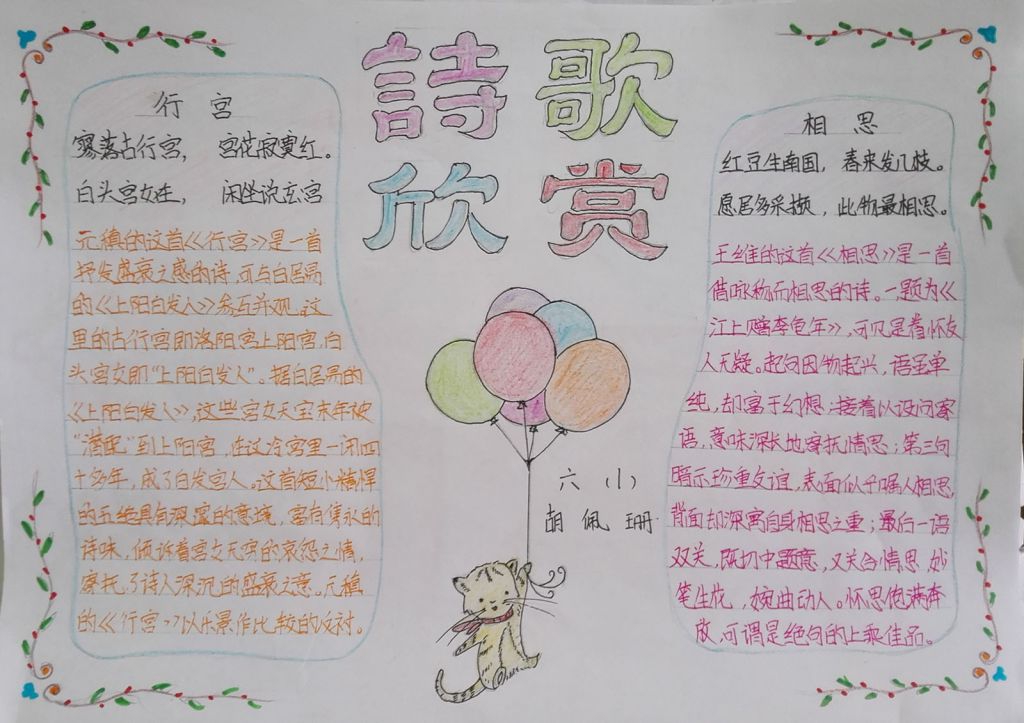 詩歌
欣赏
行宫
寥落古行宫， 宫花寂寞红。
白头宫女在， 闲坐说玄宫
元稹的这首《行宫》是一首
抒发盛衰之感的诗，可与白居易
的《上阳白发人》参互并观。这
里的古行宫即洛阳宫上阳宫，白
头宫女即“上阳白发人”。据白居易的
《上阳白发人》，这些宫女天宝末年被
“潜配”到上阳宫，在这冷宫里一闭四
十多年，成了白发宫人。这首短小精悍
的五绝具有深邃的意境，富有隽永的
诗味，倾诉着宫女无穷的哀怨之情，
寄托了诗人深沉的盛衰之意。元稹
的《行宫》以乐景作比较的反衬。
相思
红豆生南国，春来发几枝。
愿君多采撷，此物最相思。
王维的这首《相思》是一首
借咏物而相思的诗。一题为《
江上赠李龟年》，可见是着怀友
人无疑。起句因物起兴，语虽单
纯，却富于幻想；接着以设问寄
语，意味深长地寄托情思；第三句
暗示珍重友谊，表面似乎嘱人相思，
背面却深寓自身相思之重；最后一语
双关，既切中题意，又关合情思，妙
笔生花，婉曲动人。怀思饱满奔
放，可谓是绝句的上乘佳品。
六（1）
胡佩珊